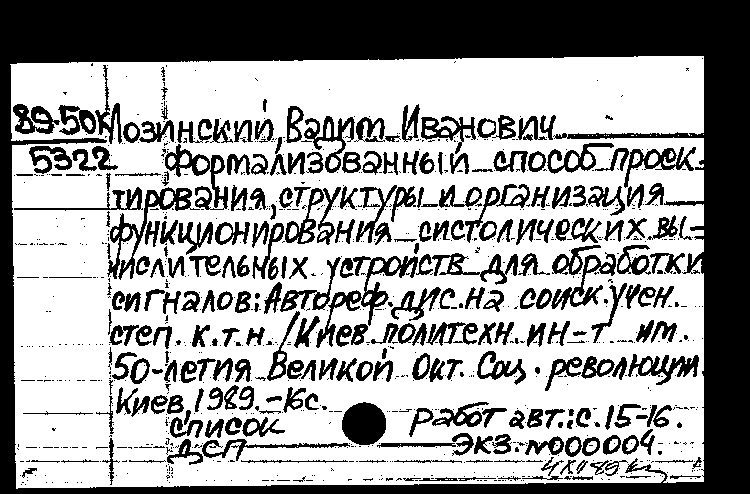 89-50К Лозинский, Вадим Иванович
5322 Формализованный способ проек-
тирования, структуры и организация
функционирования систолических вы-
числительных устройств для обработки
сигналов: Автореф. дис. на соиск. учен.
степ. к.т.н. / Киев. политехн. ин-т им.
50-летия Великой Окт. Соц. революции.
Киев, 1989. - 16 с.
Список работ авт.: с. 15-16.
ДСП Экз. №000004.